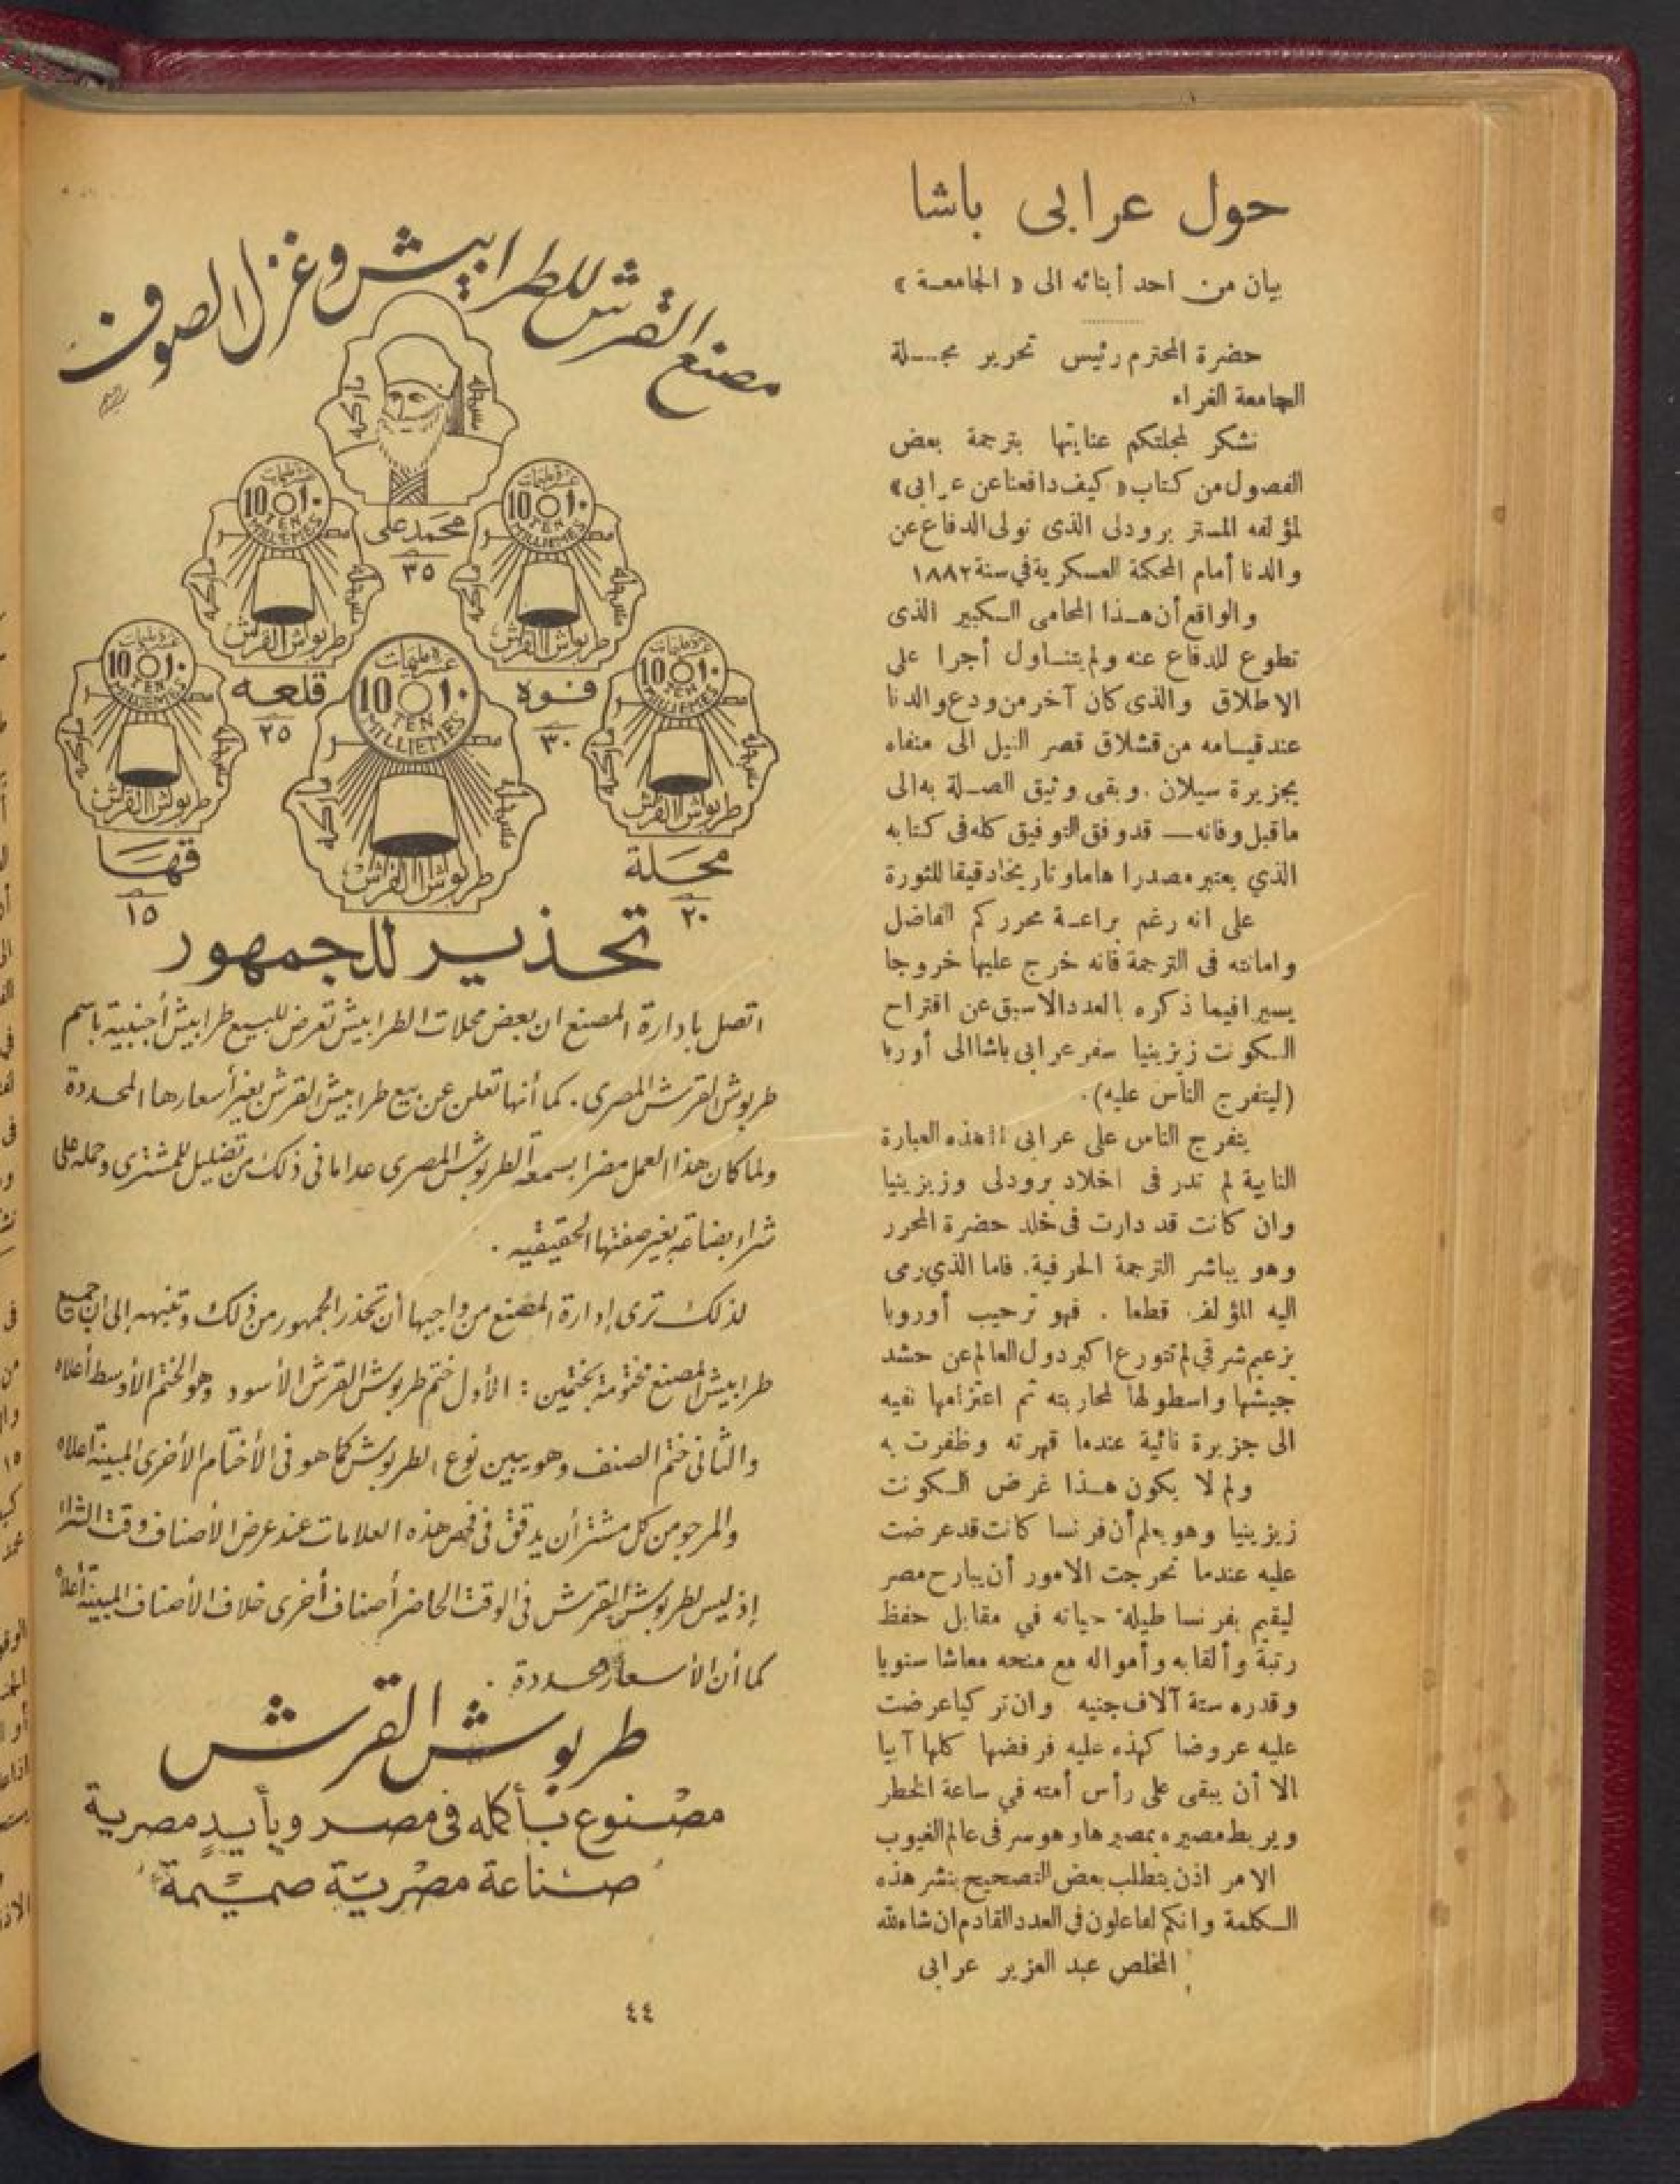 حول عرابى باشا
بيان من احد أبنائه الى « الجامعة »
حضرة المحترم رئيس تحرير مجلة
الجامعة الغراء
نشكر لمجلتكم عنايتها بترجمة بعض
الفصول من كتاب « كيف دافعنا عن عرابى »
لمؤلفه المستر برودلى الذى تولى الدفاع عن
والدنا أمام المحكمة العسكرية في سنة ١٨٨٢
والواقع أن هذا المحامى الكبير الذى
تطوع للدفاع عنه ولم يتناول أجرا على
الاطلاق والذى كان آخر من ودع والدنا
عند قيامه من قشلاق قصر النيل الى منفاه
بجزيرة سيلان . وبقى وثيق الصلة به الى
ماقبل وفاته — قد وفق التوفيق كله فى كتابه
الذي يعتبر مصدرا هاما وتاريخا دقيقا للثورة
على انه رغم براعة محرركم الفاضل
وامانته فى الترجمة فانه خرج عليها خروجا
يسيرا فيما ذكره بالعدد الاسبق عن اقتراح
الكونت زيزينيا سفر عرابى باشا الى أوربا
(ليتفرج الناس عليه) .
يتفرج الناس على عرابى !! هذه العبارة
النابية لم تدر فى اخلاد برودلى وزيزينيا
وان كانت قد دارت فى خلد حضرة المحرر
وهو يباشر الترجمة الحرفية. فاما الذي رمى
اليه المؤلف قطعا . فهو ترحيب أوروبا
بزعيم شرقي لم تتورع اكبر دول العالم عن حشد
جيشها واسطولها لمحاربته ثم اعتزامها نفيه
الى جزيرة نائية عندما قهرته وظفرت به
ولم لا يكون هذا غرض الكونت
زيزينيا وهو يعلم أن فرنسا كانت قد عرضت
عليه عندما تحرجت الامور أن يبارح مصر
ليقيم بفرنسا طيلة حياته في مقابل حفظ
رتبة وألقابه وأمواله مع منحه معاشا سنويا
وقدره ستة آلاف جنيه وان تركيا عرضت
عليه عروضا كهذه عليه فرفضها كلها آبيا
الا أن يبقى على رأس أمته في ساعة الخطر
ويربط مصيره بمصيرها وهو سر فى عالم الغيوب
الامر اذن يتطلب بعض التصحيح بنشر هذه
الكلمة وانكم لفاعلون فى العدد القادم ان شاء الله
المخلص عبد العزيز عرابى
مصنع القرش للطرابيش وغزل الصوف
مسجلة
ماركة
محمد على
٣٥
عشرة مليمات
10 ١٠
TEN
MILLIEMES
مصر
مسجلة
ماركة
طربوش القرش
قلعه
٢٥
عشرة مليمات
10 ١٠
TEN
MILLIEMES
مصر
مسجلة
ماركة
طربوش القرش
فوه
٣٠
عشرة مليمات
10 ١٠
TEN
MILLIEMES
مصر
مسجلة
ماركة
طربوش القرش
محلة
٢٠
عشرة مليمات
10 ١٠
TEN
MILLIEMES
مصر
مسجلة
ماركة
طربوش القرش
عشرة مليمات
10 ١٠
TEN
MILLIEMES
مصر
مسجلة
ماركة
طربوش القرش
قها
١٥
تحذير للجمهور
اتصل بادارة المصنع ان بعض محلات الطرابيش تعرض للبيع طرابيش أجنبية باسم
طربوش القرش المصرى . كما أنها تعلن عن بيع طرابيش القرش بغير أسعارها المحددة
ولما كان هذا العمل مضرا بسمعة الطربوش المصرى عدا ما فى ذلك من تضليل للمشترى وحمله على
شراء بضاعة بغير صفتها الحقيقيه .
لذلك ترى إدارة المصنع من واجبها أن تحذر الجمهور من ذلك وتنبهه إلى ان جميع
طرابيش المصنع مختومة بختمين : الأول ختم طربوش القرش الأسود وهو الختم الأوسط أعلاه
والثانى ختم الصنف وهو يبين نوع الطربوش كما هو فى الأختام الأخرى المبينة اعلاه
والمرجو من كل مشتر أن يدقق فى فحص هذه العلامات عند عرض الأصناف وقت الشراء
إذ ليس لطربوش القرش فى الوقت الحاضر أصناف أخرى خلاف الأصناف المبينة أعلاه
كما أن الأسعار محددة .
طربوش القرش
مصنوع بأكمله فى مصر وبأيد مصرية
صناعة مصرية صميمة
٤٤